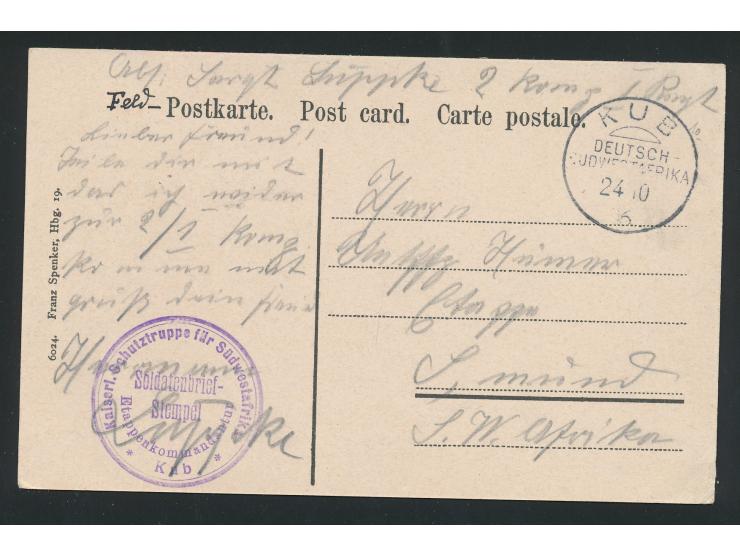 Abs: Sergt Lüppke 2 Komp I Regt
Feld- Postkarte. Post card. Carte postale.
KUB
DEUTSCH-
SÜDWESTAFRIKA
24 10
6
Lieber Freund!
Teile dir mit
das ich wieder
zur 2/I Komp
komme mit
gruß dein Freund
Hermann
Lüppke
Herrn
Hümer
Etappe
S. W. Afrika
6024. Franz Spenker, Hbg. 19.
Kaiserl. Schutztruppe für Südwestafrika
Soldatenbrief-
Stempel
Etappenkommandantur
* Kub *